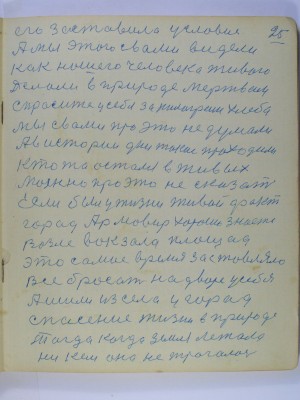 его заставила условия 25
А мы этого с вами видели
как нашего человека живого
Делали в природе мертвым
спросите у себя за килограмм хлеба
мы с вами про это не думали
А в истории дни такие проходили
кто то остался в живых
можно про это не сказать
Если был у жизни живой факт
город Армавир хорошо знаете
возле вокзала площад
это самое время заставляло
все бросать на дворе у себя
А шли из села у город
спасение жизни в природе
Тогда когда земля лежала
ни кем она не трогалась